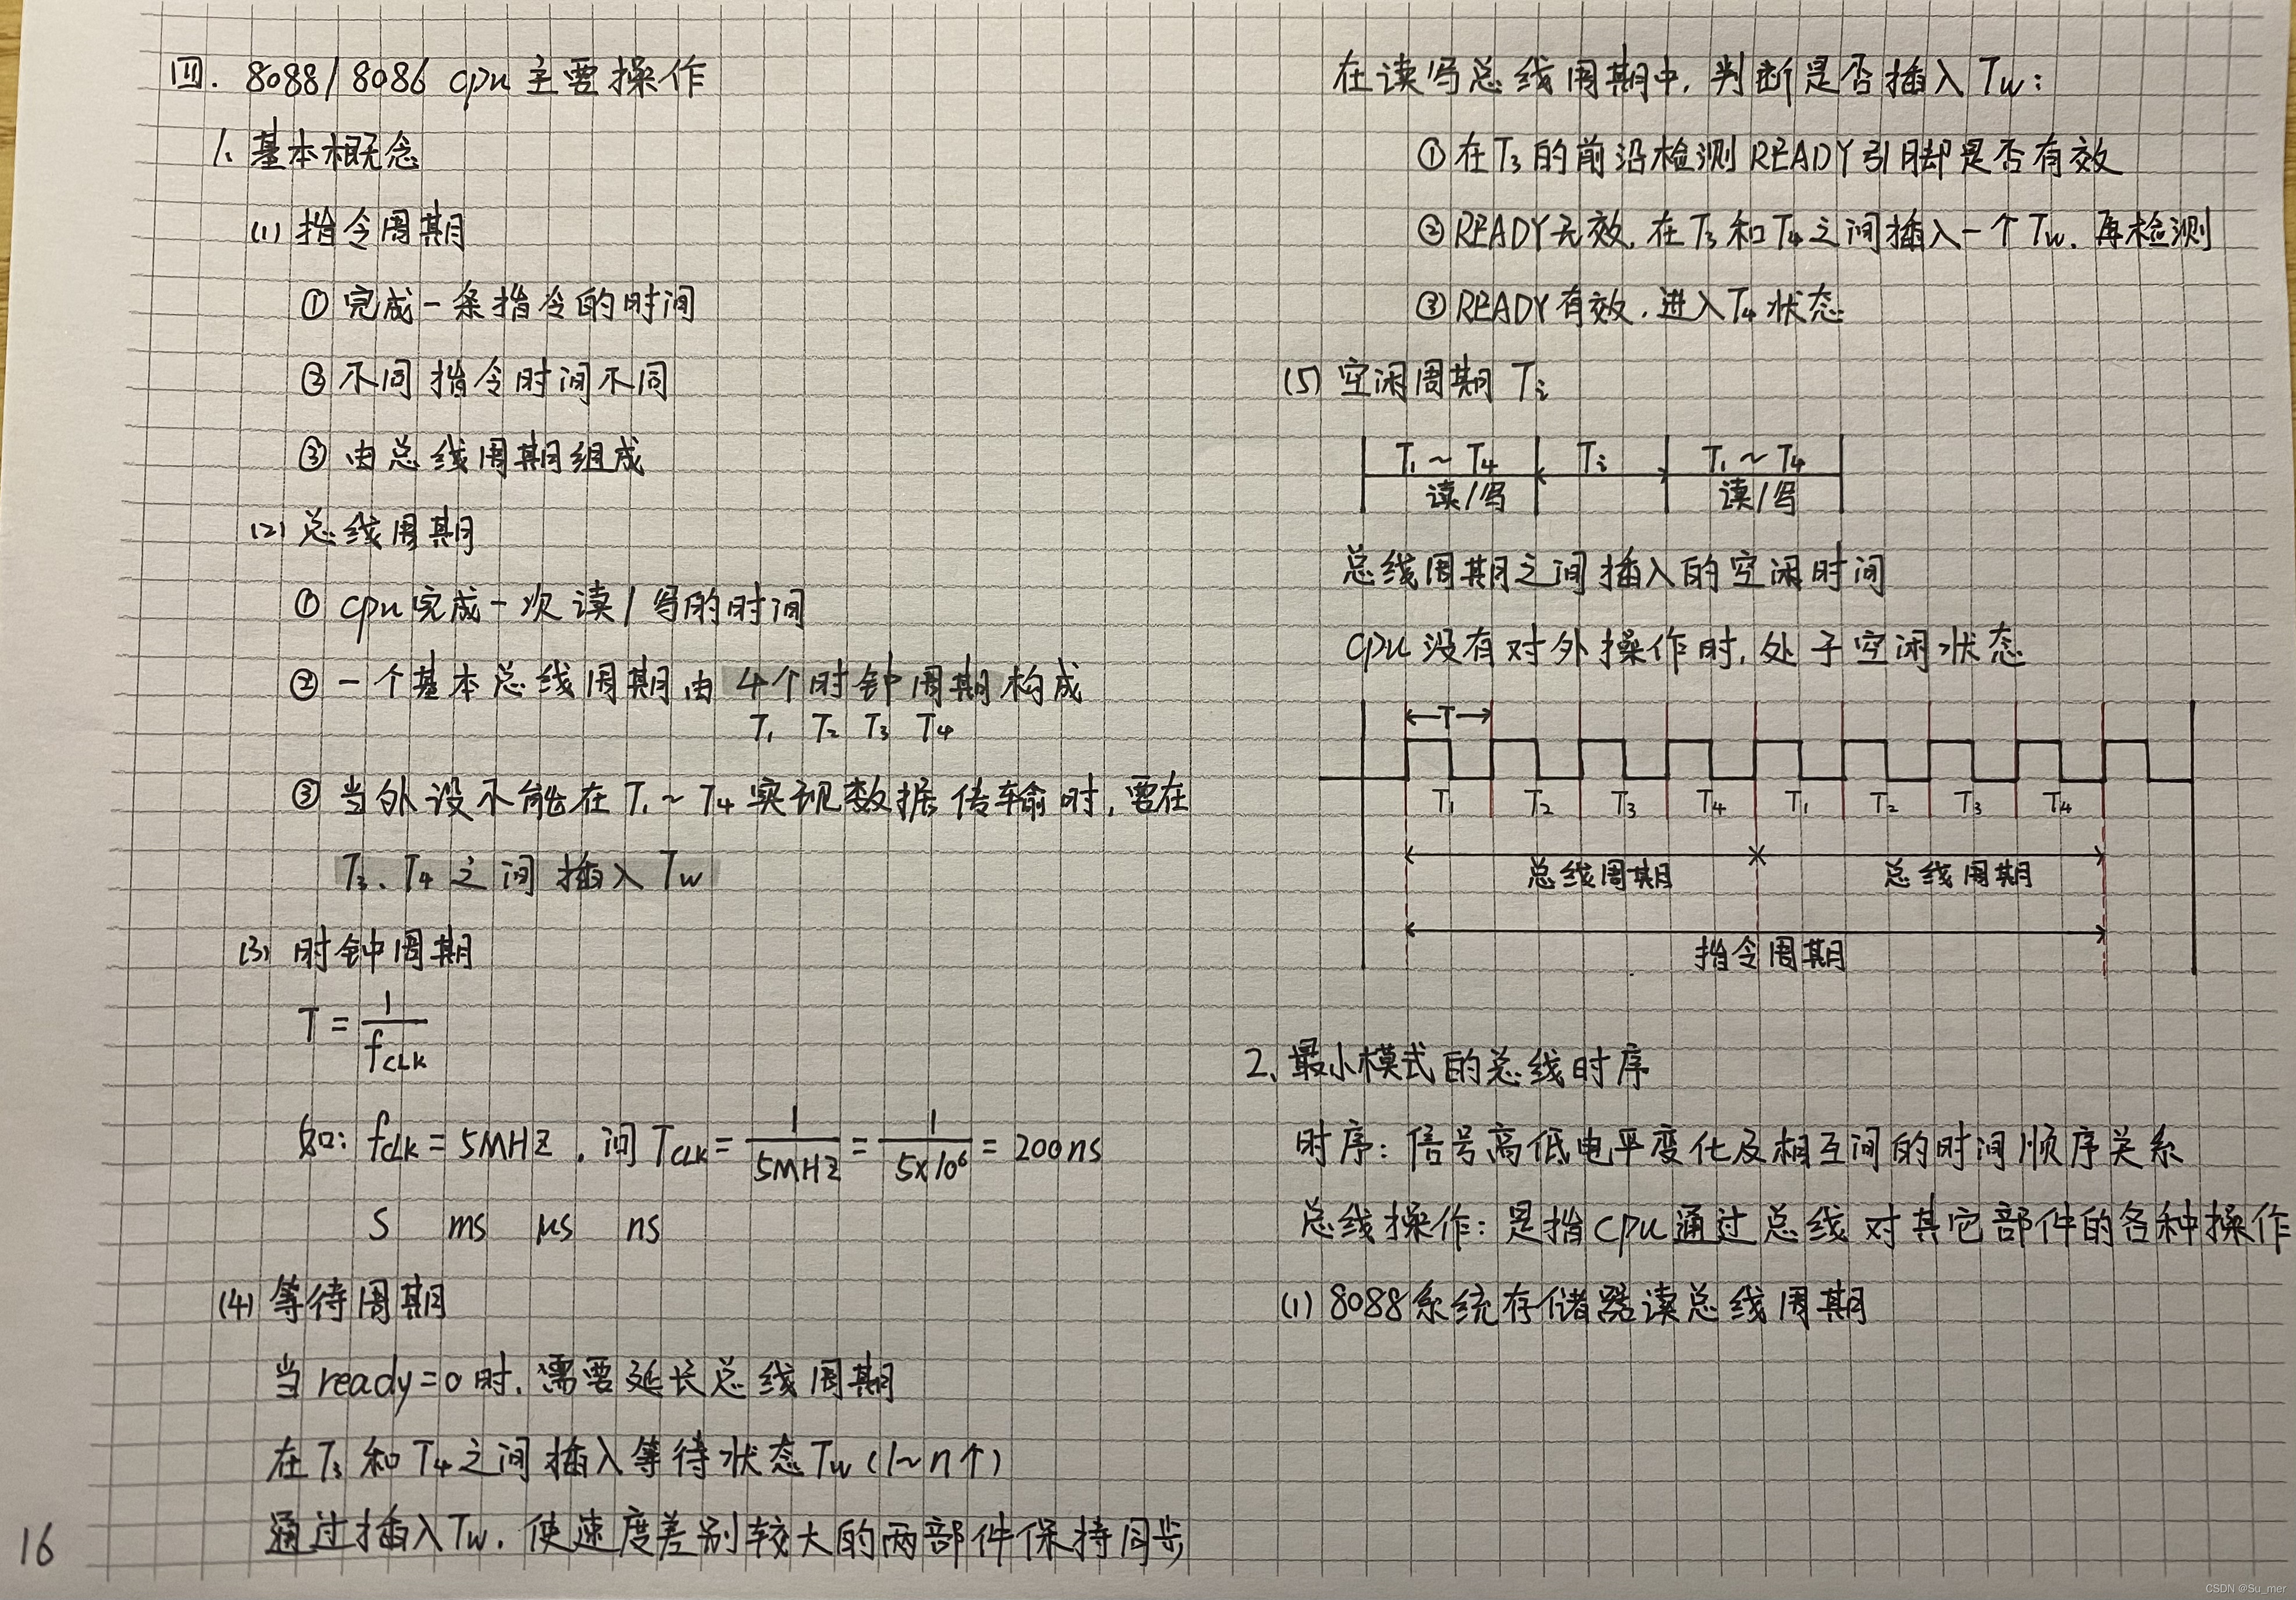 四. 8088/8086 cpu 主要操作
1、基本概念
(1) 指令周期
① 完成一条指令的时间
② 不同指令时间不同
③ 由总线周期组成
(2) 总线周期
① cpu完成一次读/写的时间
② 一个基本总线周期由4个时钟周期构成
T₁ T₂ T₃ T₄
③ 当外设不能在T₁~T₄实现数据传输时,要在
T₃、T₄之间插入Tw
(3) 时钟周期
T = 1/fCLK
如: fclk = 5MHZ, 问TCLK = 1/5MHZ = 1/5×10⁶ = 200ns
S ms μs ns
(4) 等待周期
当ready=0时,需要延长总线周期
在T₃和T₄之间插入等待状态Tw(1~n个)
通过插入Tw,使速度差别较大的两部件保持同步
16
在读写总线周期中,判断是否插入Tw:
①在T₃的前沿检测READY引脚是否有效
②READY无效,在T₃和T₄之间插入一个Tw.再检测
③READY有效,进入T₄状态
(5) 空闲周期Ti
T₁~T₄ Ti T₁~T₄
读/写 读/写
总线周期之间插入的空闲时间
cpu没有对外操作时,处于空闲状态
T
T₁ T₂ T₃ T₄ T₁ T₂ T₃ T₄
总线周期 总线周期
指令周期
2、最小模式的总线时序
时序: 信号高低电平变化及相互间的时间顺序关系
总线操作: 是指cpu通过总线对其它部件的各种操作
(1) 8088系统存储器读总线周期
CSDN @Su_mer